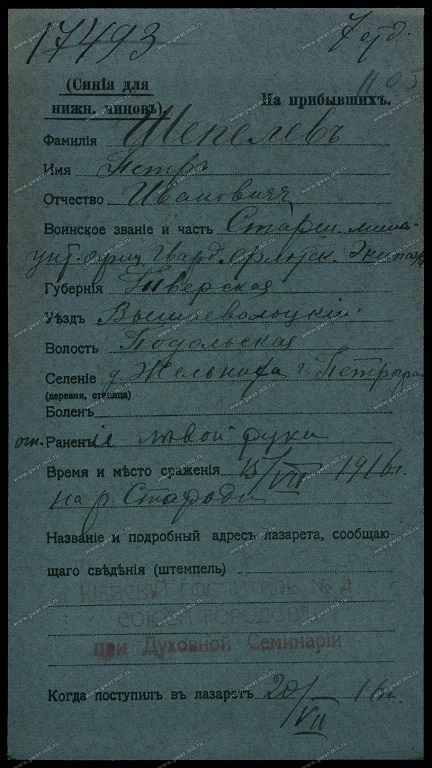 17493 7 отд.
1105
(Синія для
нижн. чиновъ) На прибывшихъ.
Фамилія Шепелевъ
Имя Петръ
Отчество Ивановичъ
Воинское званіе и часть Старш.
унт. офиц Гвард. флотск. Экипажъ
Губернія Тверская
Уѣздъ Вышневолоцкій
Волость Подольская
Селеніе д. г. Петроград
(деревня, станица)
Боленъ
огн. Раненіе лѣвой руки
Время и мѣсто сраженія 15/VII 1916 г.
на р. Стоходѣ
Названіе и подробный адресъ лазарета, сообщаю-
щаго свѣдѣнія (штемпель)
КІЕВСКІЙ ГОСПИТАЛЬ № 4
СОЮЗА ГОРОДОВЪ
при Духовной Семинаріи
Когда поступилъ въ лазаретъ 20/VII 16 г.